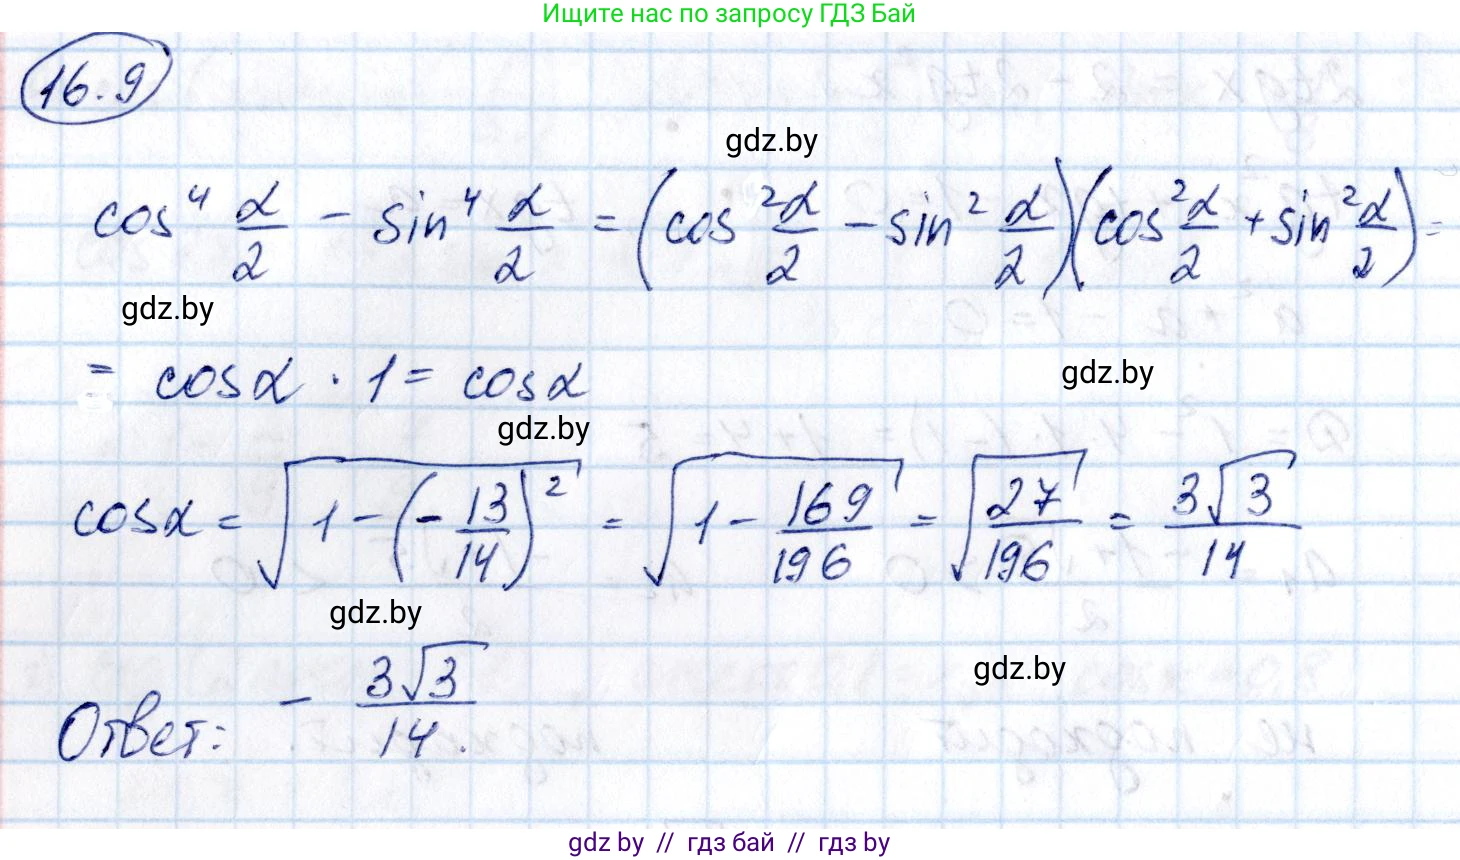 Ищите нас по запросу ГДЗ Бай
16.9
gdz.by
cos⁴ α/2 − sin⁴ α/2 = (cos² α/2 − sin² α/2)(cos² α/2 + sin² α/2) =
gdz.by
= cosα · 1 = cosα
gdz.by
gdz.by
cosα = √(1 − (−13/14)²) = √(1 − 169/196) = √(27/196) = 3√3/14
gdz.by
gdz.by
Ответ: − 3√3/14.
gdz by // гдз бай // гдз by